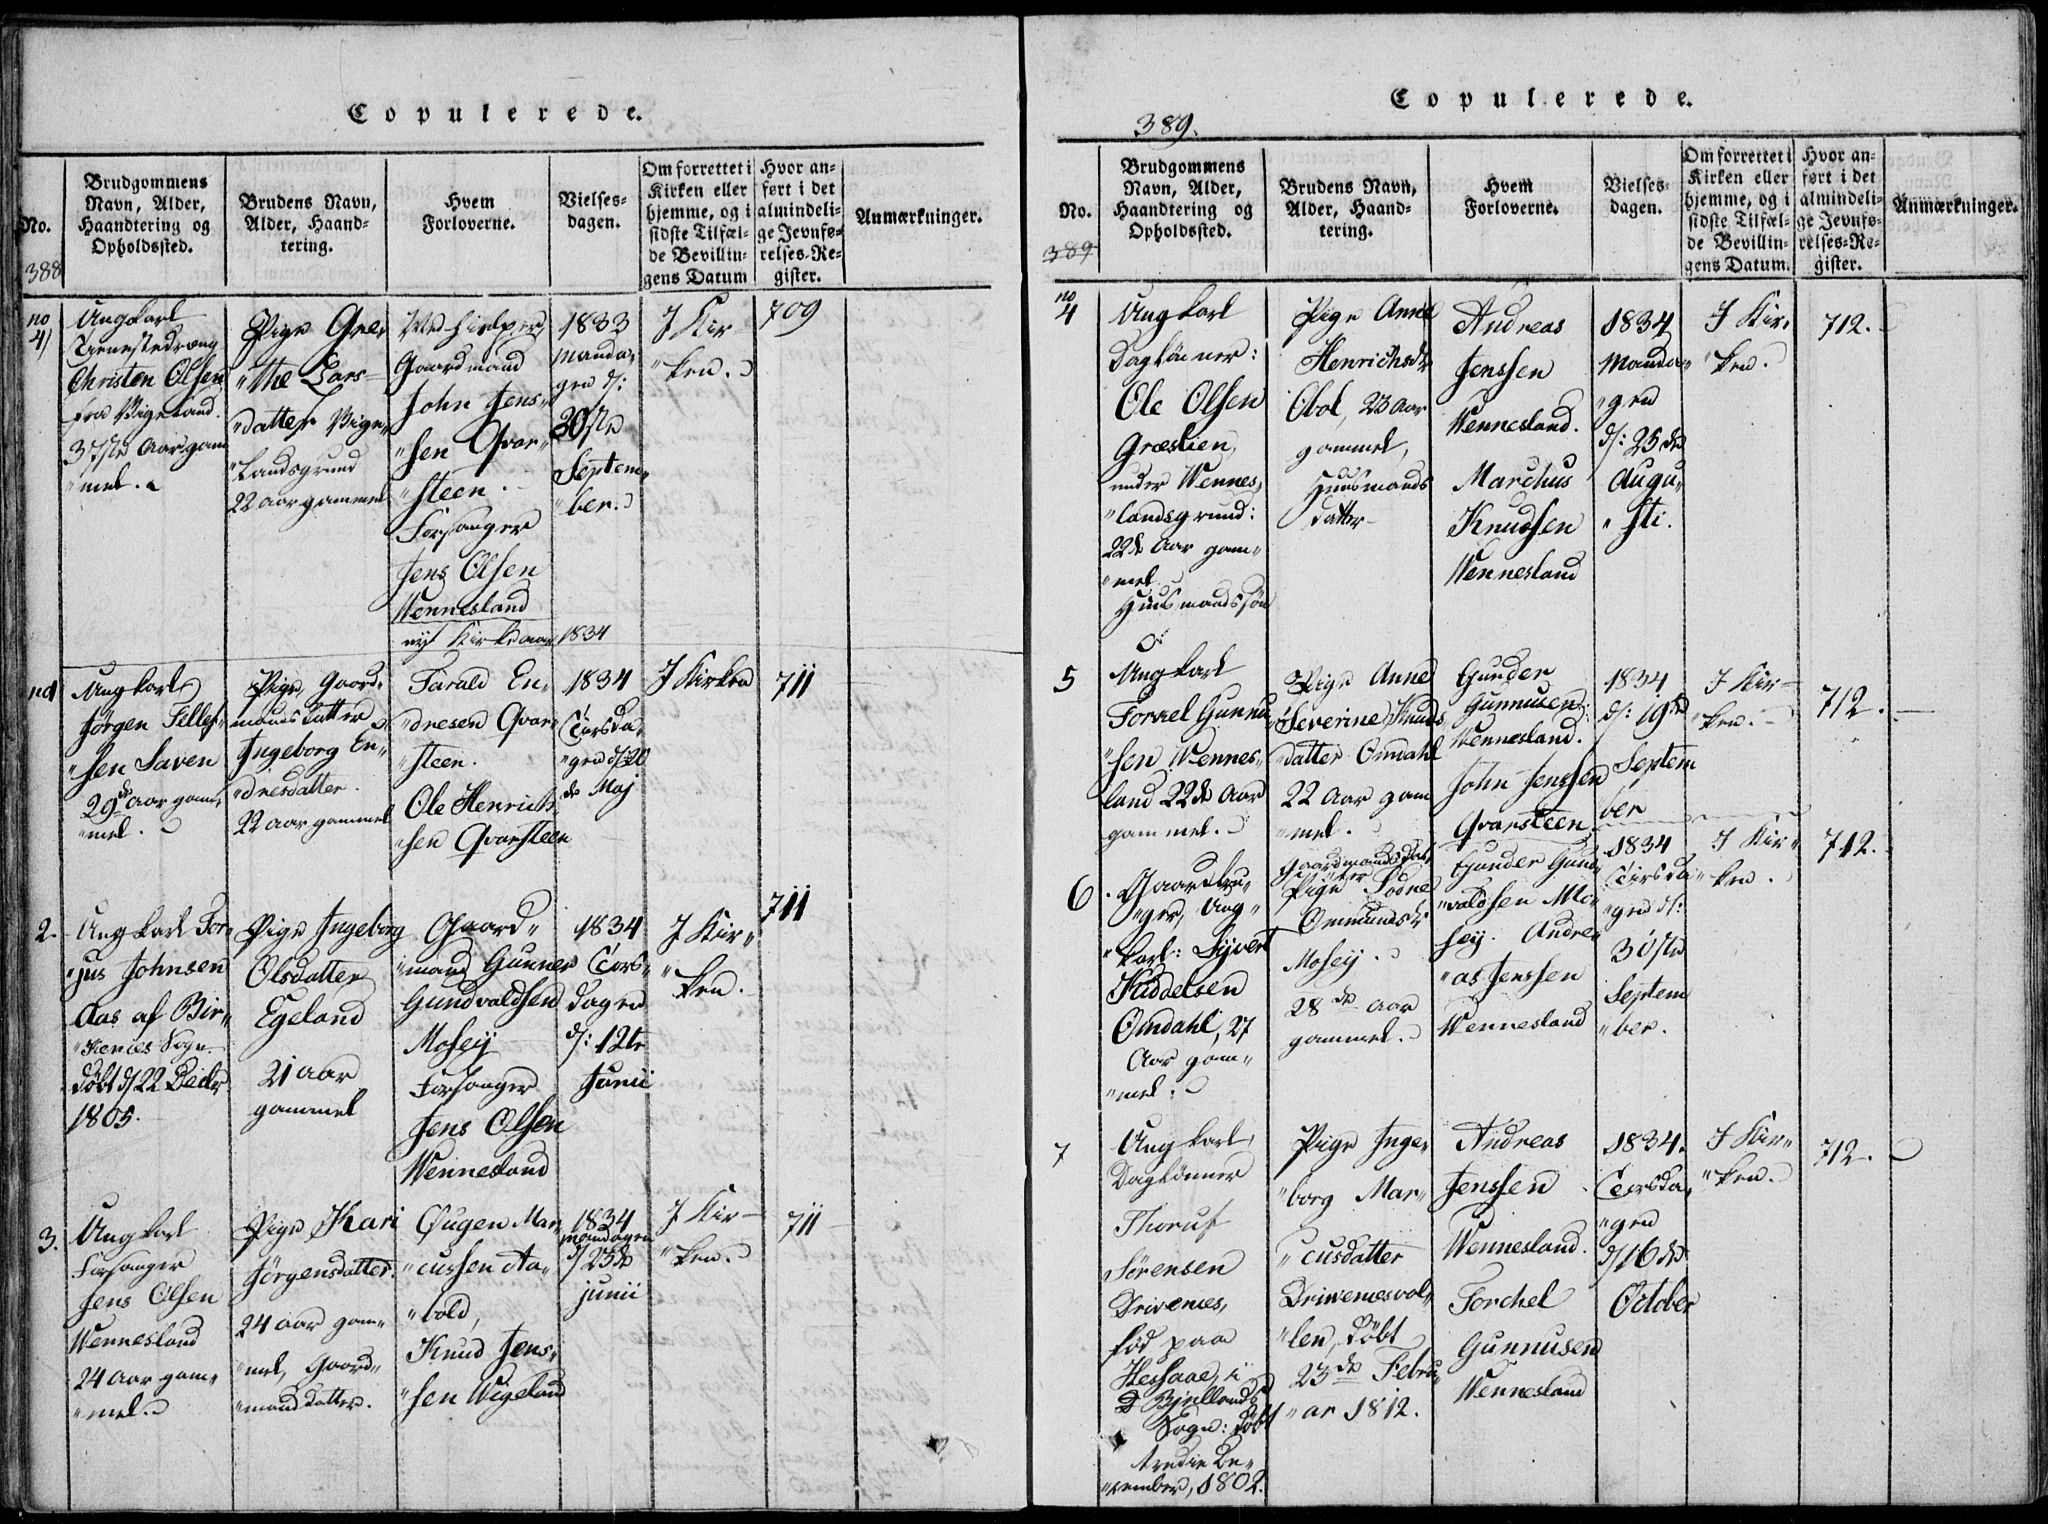 Copulerede.
No.
388
Brudgommens
Navn, Alder,
Haandtering og
Opholdssted.
Brudens Navn,
Alder, Haand-
tering.
Hvem
Forloverne.
Vielses-
dagen.
Om forrettet i
Kirken eller
hjemme, og i
sidste Tilfæl-
de Bevillin-
gens Datum
Hvor an-
ført i det
almindeli-
ge Jevnfø-
relses-Re-
gister.
Anmærkninger.
no
4)
Ungkarl
Tienestedreng
Christen Olsen
fra Vigeland.
37te Aar gam
"mel.
Pige Gre-
"the Lars-
"datter Vige-
"landsgrund
22 aar gammel
Ved hielper
Gaardmand
John Jens-
"sen Qvar-
"steen.
Forsanger
Jens Olsen
Wennesland
1833
Manda-
gen d:
30te
Septem-
"ber.
I Kir
"ken.
709
nyt Kirkeaar 1834
no1
Ungkarl
Jørgen Tellef-
"sen Saven
29de aar gam-
"mel.
Pige, Gaard-
mands datter
Ingeborg En-
"dresdatter.
22 aar gammel
Tarald En-
"dresen Qvar-
"steen.
Ole Henrich-
"sen Qvarsteen
1834
Tirsda-
"gen d/20
de Maj
I Kirken
711
2.
Ungkarl Tor-
"jus Johnsen
Aas af Bir-
"kenes Sogn.
døbt d/22 Decbr
1805.
Pige Ingeborg
Olsdatter
Egeland
21 aar
gammel
Gaard-
"mand Gunner
Gundvaldsen
Mosey
Forsanger
Jens Olsen
Wennesland
1834
Tors-
dagen
d: 12te
Junii
I Kir-
"ken.
711
3.
Ungkarl
Forsanger
Jens Olsen
Wennesland
24 aar gam-
"mel.
Pige Kari
Jørgensdatter.
24 aar gam-
"mel, Gaard-
"mand datter.
Øugen Mar-
"cussen Aa-
"bold,
Knud Jens-
"sen Wigeland
1834
Mandagen
d/23de
junii
I Kir-
"ken.
711
Copulerede.
389.
No.
389
Brudgommens
Navn, Alder,
Haandtering og
Opholdssted.
Brudens Navn,
Alder, Haand-
tering.
Hvem
Forloverne.
Vielses-
dagen.
Om forrettet i
Kirken eller
hjemme, og i
sidste Tilfæl-
de Bevillin-
gens Datum.
Hvor an-
ført i det
almindeli-
ge Jevnfø-
relses-Re-
gister.
Anmærkninger.
no
4
Ungkarl
Daglønner:
Ole Olsen
Græslien,
under Wennes-
"landsgrund:
22de Aar gam-
"mel.
Huusmandssøn
Pige Anne
Henrichsdr
Obol, 23 aar
gammel,
Huusmands
datter
Andreas
Jenssen
Wennesland.
Marchus
Knudsen
Wennesland
1834
Manda-
"gen
d: 25de
Augu-
"sti.
I Kir-
"ken.
712.
5
Ungkarl
Torkel Gunnu-
"sen Wennes-
land 22de Aar
gammel.
Pige Anne
Severine Knuds
"datter Omdahl
22 Aar gam
"mel.
Gaardmandsdat-
ter
Gunder
Gunnusen
Wennesland.
John Jenssen
Qvarsteen
1834
d: 19de
Septem
ber
I Kir-
"ken.
712.
6.
Gaardbru-
"ger, Ung-
"karl: Syvert
Kiddelsen
Omdahl, 27
Aar gam-
"mel:
Pige Todne
Ommundsdr
Mosey.
28de aar
gammel.
Gunder Gund-
"valdsen Mo-
sey. Andre-
"as Jenssen
Wennesland
1834
Tirsda-
"gen d:
30te
Septem
"ber.
I Kir-
ken.
712.
7
Ungkarl,
Daglønner
Thorus
Sørensen
Drivenes,
fød paa
Hessaae, i
Bjellands
Sogn: døbt
tredie De-
"cember, 1802.
Pige Inge-
"borg Mar-
"cusdatter
Drivenesvol-
"len, døbt
23de Febru-
"ar 1812.
Andreas
Jenssen
Wennesland.
Torchel
Gunnusen
Wennesland
1834.
Torsda-
"gen
d/16de
October
I Kir-
"ken.
712.